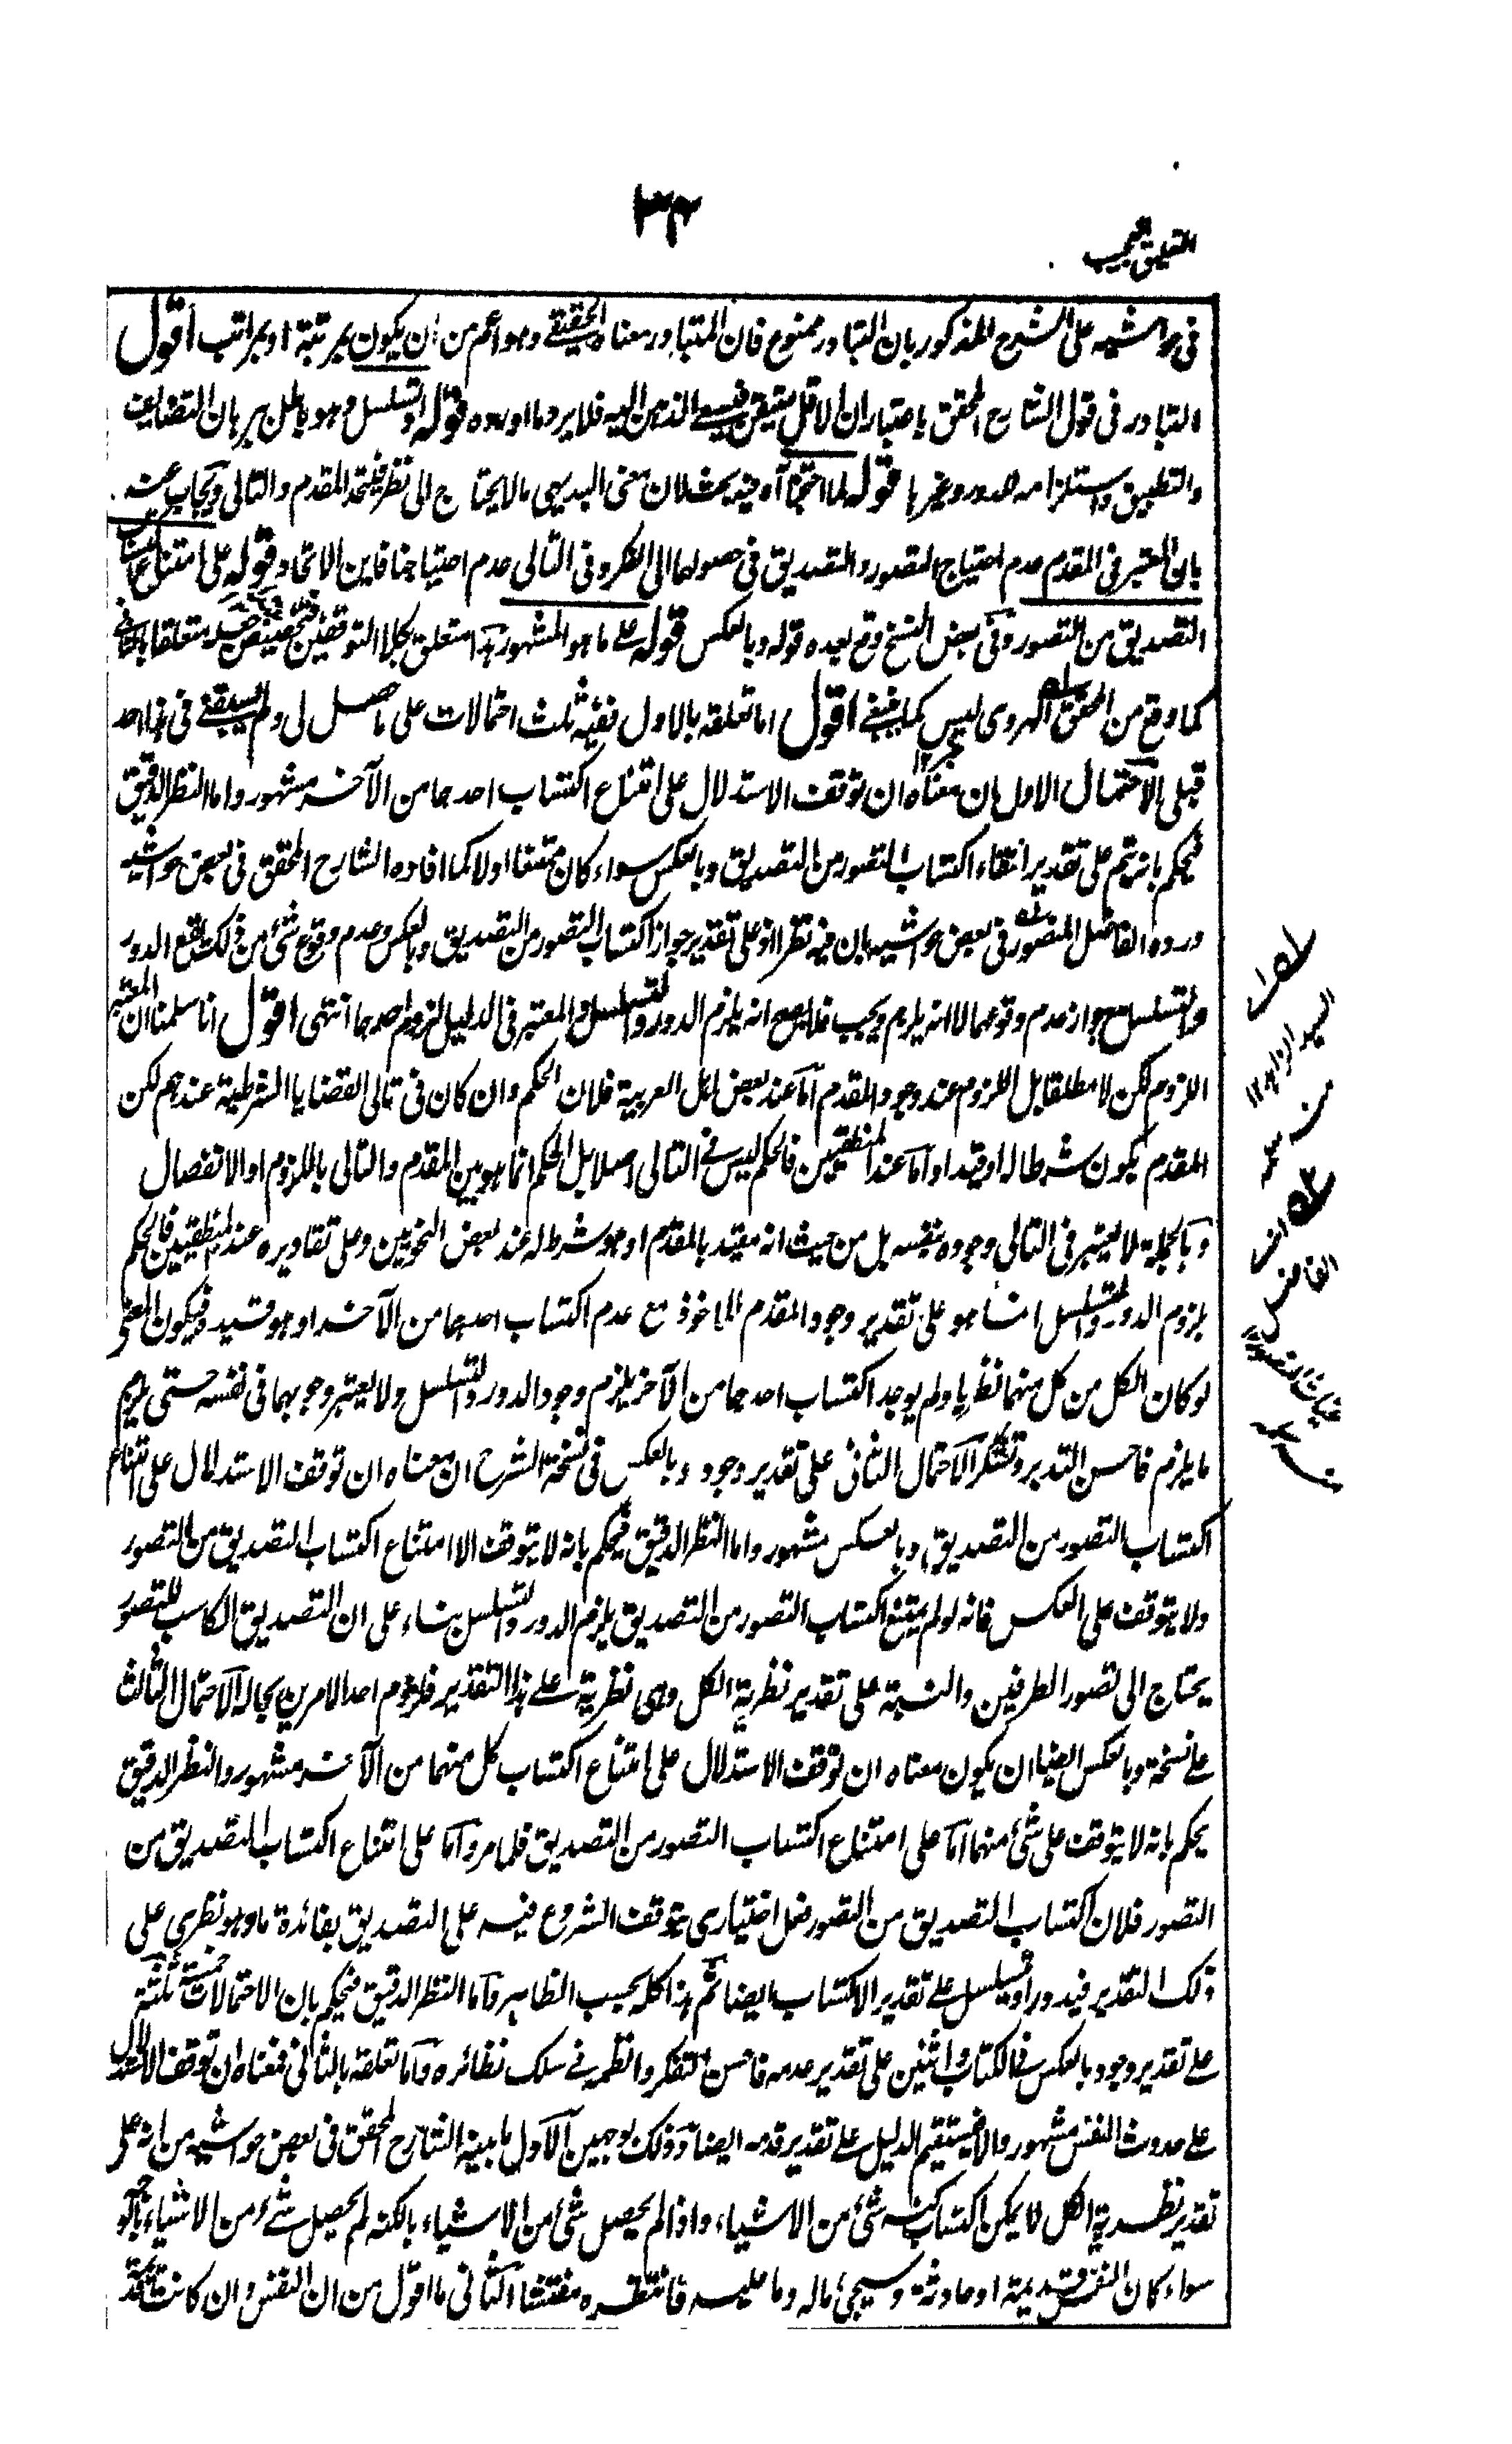 ٣٤
التعليق العجيب
في حواشيه على الشرح المذكور بان التبادر ممنوع فان المتبادر معناه الحقيقي وهو اعم من ان يكون بمرتبة او بمراتب اقول
التبادر في قول الشارح المحقق باعتبار ان الاقل متيقن فيسبق الذهن اليه فلا يرد ما اورده قوله او تسلسل وهو باطل ببرهان التضايف
والتطبيق واستلزامه وغيرها قوله لما احتجنا آه فيه بحث لان معنى البديهي ما لا يحتاج الى نظر فيتحد المقدم والتالي ويجاب عنه
بان المعتبر في المقدم عدم احتياج التصور والتصديق في حصولهما الى الفكر وفي التالي عدم احتياجنا فاين الاتحاد قوله على امتناع اكتساب
التصديق من التصور وفي بعض النسخ وقع بعده قوله وبالعكس قوله على ما هو المشهور هذا متعلق بكلا التوقفين متعلقا بالثاني
كما وقع من المحقق الهروي ليس كما ينبغي اقول اما تعلقه بالاول ففيه ثلث احتمالات على ما حصل لي ولم يسبقني في هذا احد
قبلي الاحتمال الاول ان معناه ان توقف الاستدلال على امتناع اكتساب احدهما من الآخر مشهور واما النظر الدقيق
فيحكم بانه يتم على تقدير انتفاء اكتساب التصور من التصديق وبالعكس سواء كان ممتنعا اولا كما افاده الشارح المحقق في بعض حواشيه
ورده الفاضل المنصور في بعض حواشيه بان فيه نظرا اذ على تقدير جواز اكتساب التصور من التصديق وبالعكس وعدم وقوع شئ من ذلك يقع الدور
والتسلسل مع جواز عدم وقوعهما لا انه يلزم ويجب فلا يصح انه يلزم الدور والتسلسل والمعتبر في الدليل لزوم احدهما انتهى اقول انا سلمنا ان المعتبر
اللزوم لكن لا مطلقا بل اللزوم عند وجود المقدم اما عند بعض اهل العربية فلان الحكم وان كان في تالي القضايا الشرطية عندهم لكن
المقدم يكون شرطا له او قيدا واما عند المنطقيين فالحكم ليس في التالي اصلا بل الحكم انما هو بين المقدم والتالي باللزوم او الانفصال
وبالجملة لا يعتبر في التالي وجوده بنفسه بل من حيث انه مقيد بالمقدم او هو شرط له عند بعض النحويين وعلى تقاديره عند المنطقيين فالحكم
بلزوم الدور والتسلسل انما هو على تقدير وجود المقدم الماخوذ مع عدم اكتساب احدهما من الآخر او هو قيد فيكون المعنى
لو كان الكل من كل منهما نظريا ولم يوجد اكتساب احدهما من الآخر يلزم وجود الدور والتسلسل ولا يعتبر وجوبهما في نفسه حتى يلزم
ما يلزم فاحسن التدبر وتشكر الاحتمال الثاني على تقدير وجود وبالعكس في نسخة الشرح ان معناه ان توقف الاستدلال على امتناع
اكتساب التصور من التصديق وبالعكس مشهور واما النظر الدقيق فيحكم بانه لا يتوقف الا امتناع اكتساب التصديق من التصور
ولا يتوقف على العكس فانه لو لم يمتنع اكتساب التصور من التصديق يلزم الدور والتسلسل بناء على ان التصديق الكاسب للتصور
يحتاج الى تصور الطرفين والنسبة على تقدير نظرية الكل وهي نظرية على هذا التقدير فلزوم احد الامرين بحاله الاحتمال الثالث
على نسخة وبالعكس ايضا ان يكون معناه ان توقف الاستدلال على امتناع اكتساب كل منهما من الآخر مشهور والنظر الدقيق
يحكم بانه لا يتوقف على شئ منهما اما على امتناع اكتساب التصور من التصديق فلما مر واما على امتناع اكتساب التصديق من
التصور فلان اكتساب التصديق من التصور فعل اختياري يتوقف الشروع فيه على التصديق بفائدة ما وهو نظري على
ذلك التقدير فيدور او يتسلسل على تقدير الاكتساب ايضا ثم هذا كله بحسب الظاهر واما النظر الدقيق فيحكم بان الاحتمالات خمسة ثلثة
على تقدير وجود بالعكس في الكتاب واثنين على تقدير عدمه فاحسن التفكر وانظمه في سلك نظائره واما تعلقه بالثاني فمعناه ان توقف الاستدلال
على حدوث النفس مشهور والا فيستقيم الدليل على تقدير قدمه ايضا وذلك لوجهين الاول ما بينه الشارح المحقق في بعض حواشيه من انه على
تقدير نظرية الكل لا يمكن اكتساب كنه شئ من الاشياء واذا لم يحصل شئ من الاشياء بالكنه لم يحصل شئ من الاشياء بالوجه
سواء كان النفس قديمة او حادثة وسيجئ ماله وما عليه فانتظره مفتشا الثاني ما اقول من ان النفس وان كانت قديمة
السيد الزاهد ١٢
منه
الفاضل
غياث المنصور